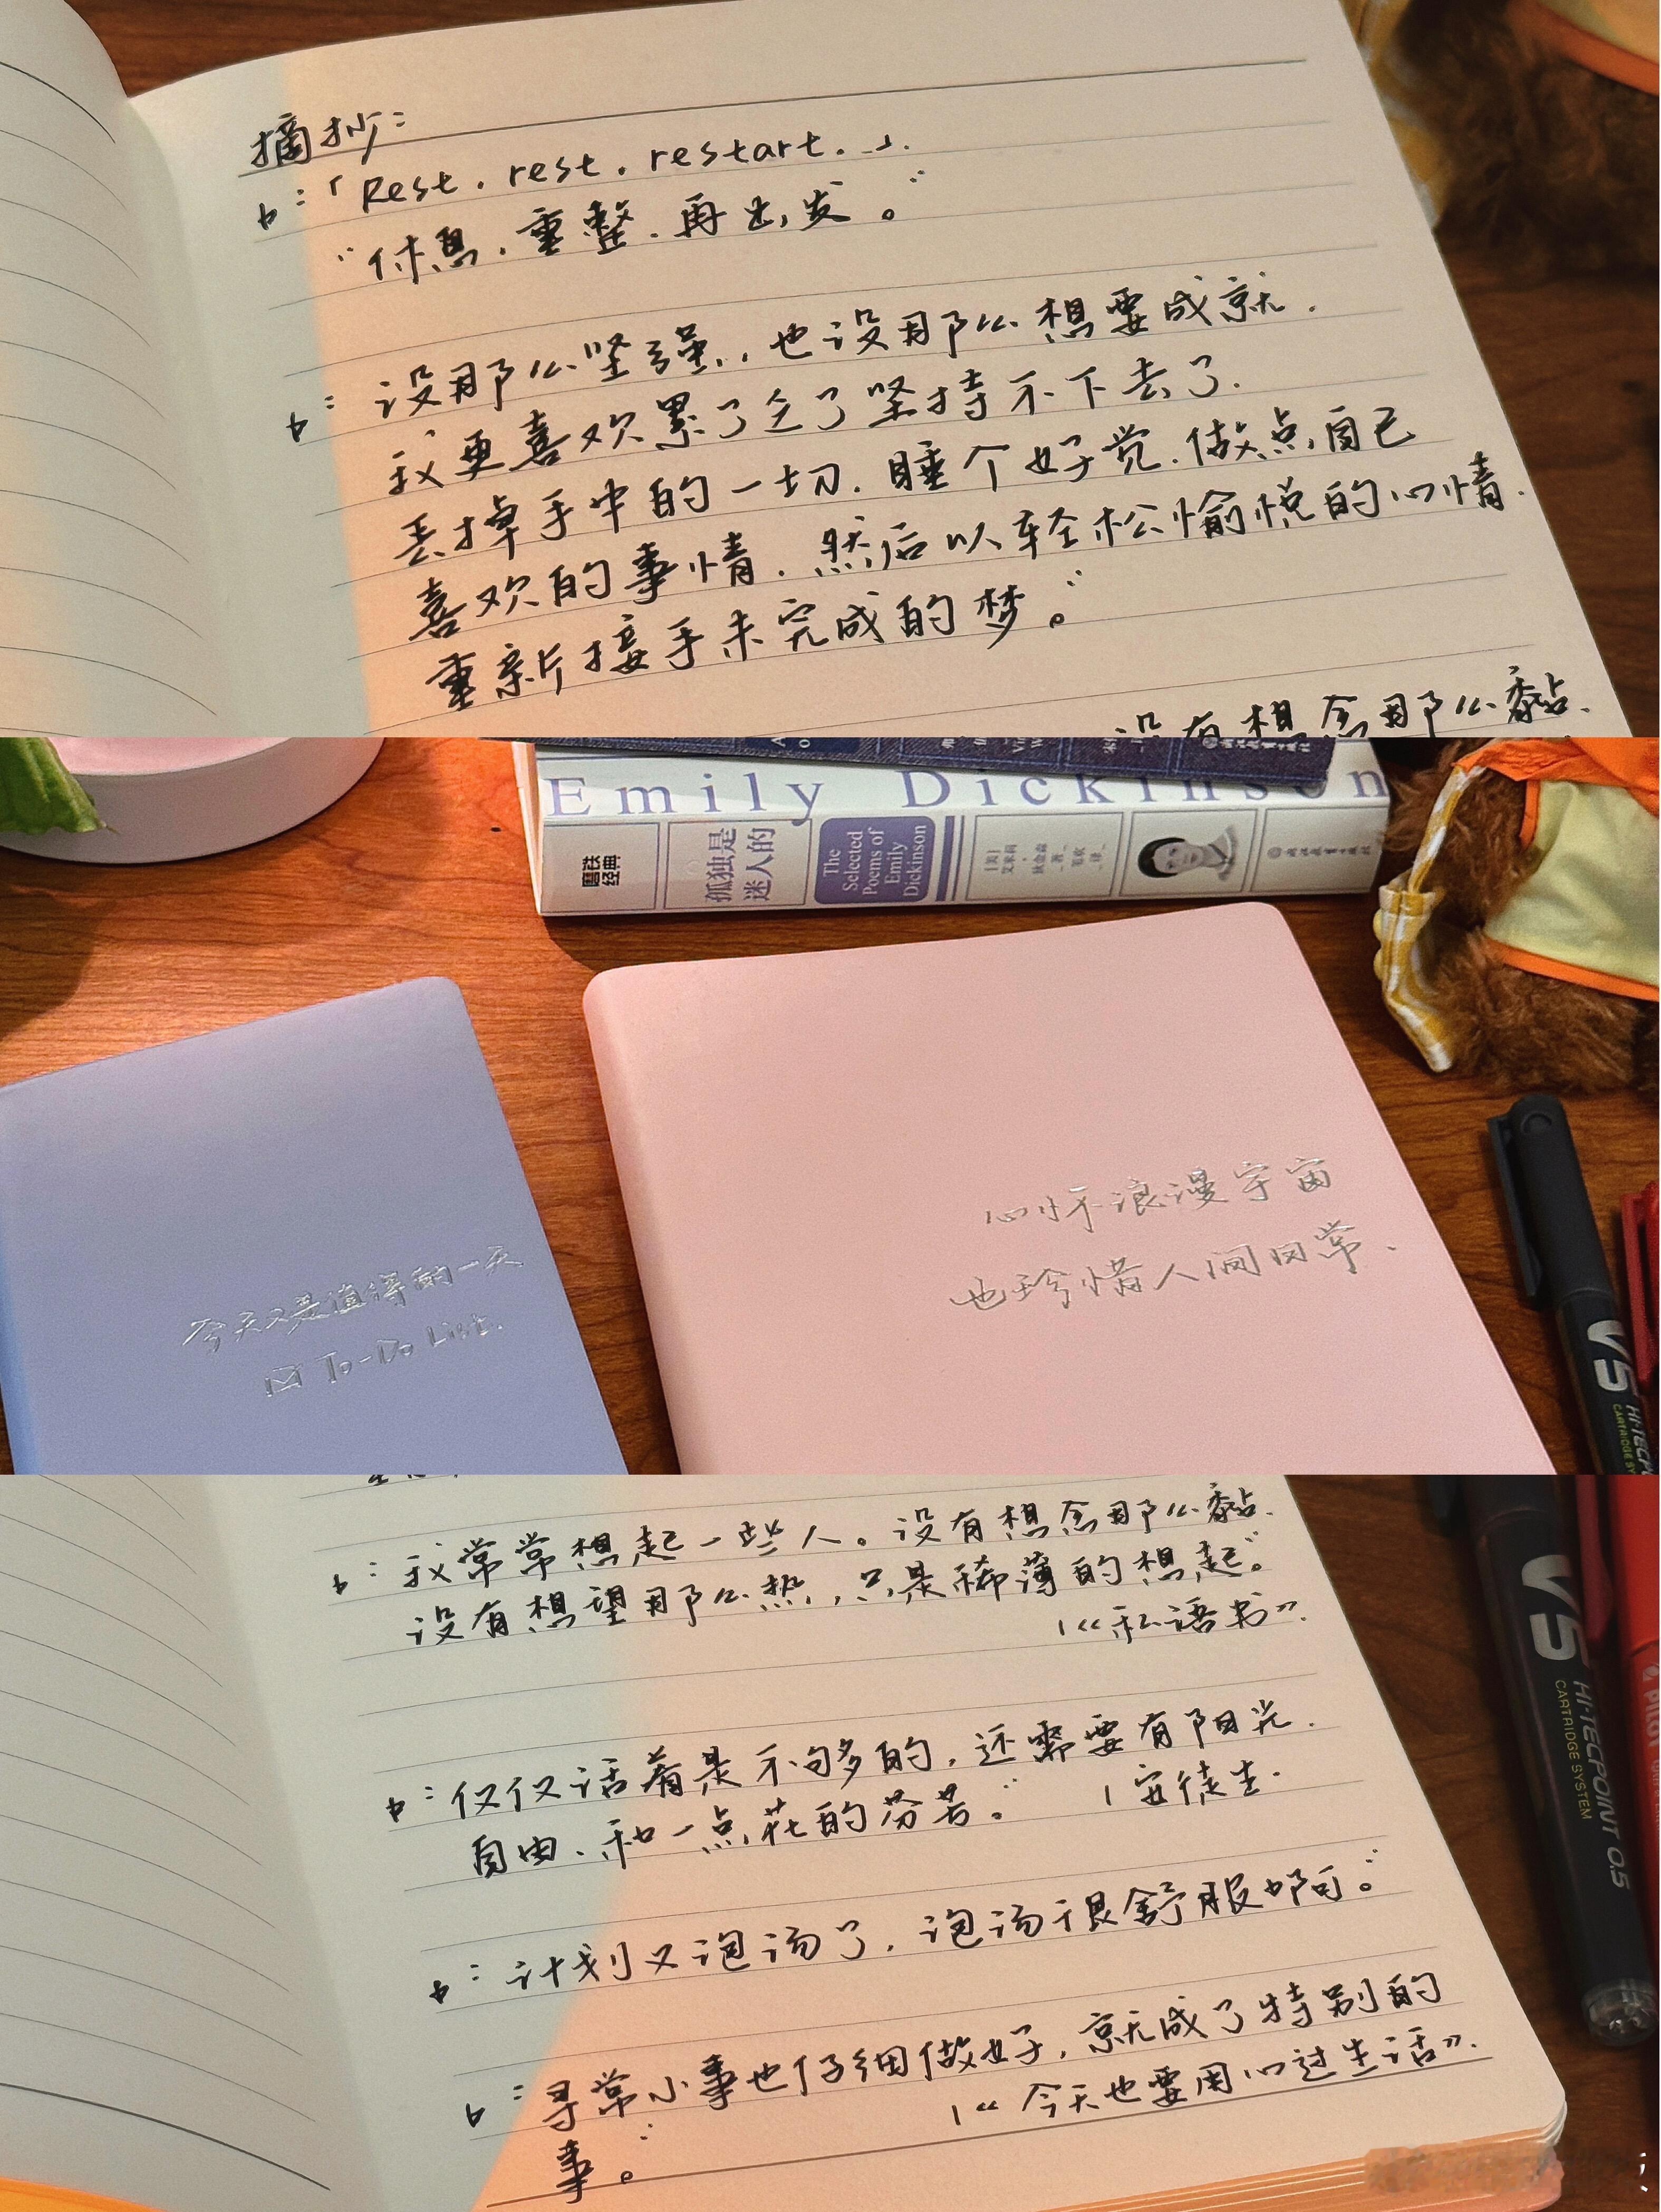 摘抄:
b:「Rest.rest.restart.」.
“休息.重整.再出发。”
b:没那么坚强,也没那么想要成就.
我更喜欢累了乏了坚持不下去了.
丢掉手中的一切.睡个好觉.做点自己
喜欢的事情.然后以轻松愉悦的心情.
重新接手未完成的梦。”
没有想念那么黏.
Emily Dickinson
磨铁
经典
孤独是
迷人的
The
Selected
Poems of
Emily
Dickinson
[美]
艾米莉·
狄金森
著
今天又是值得的一天
To-Do List.
心怀浪漫宇宙
也珍惜人间日常.
V5
HI-TECPOINT
CARTRIDGE SY
b:我常常想起一些人。没有想念那么黏.
没有想望那么热,只是稀薄的想起。”
|《私语书》.
b:仅仅活着是不够的,还需要有阳光.
自由.和一点花的芬芳。” |安徒生.
b:计划又泡汤了,泡汤很舒服啊。”
b:寻常小事也仔细做好,就成了特别的
事。”
|《今天也要用心过生活》.
V5
HI-TECPOINT 0.5
CARTRIDGE SYSTEM
PILOT